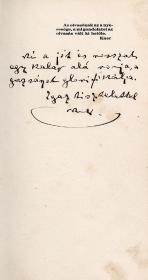 Az olvasásnak az a nye-
resége, a mi gondolatot az
olvasás vált ki belőle.
Kner
Ki a jót és rosszat
egy kalap alá vonja, a
gazságot glorifikálja.
Igaz tisztelettel